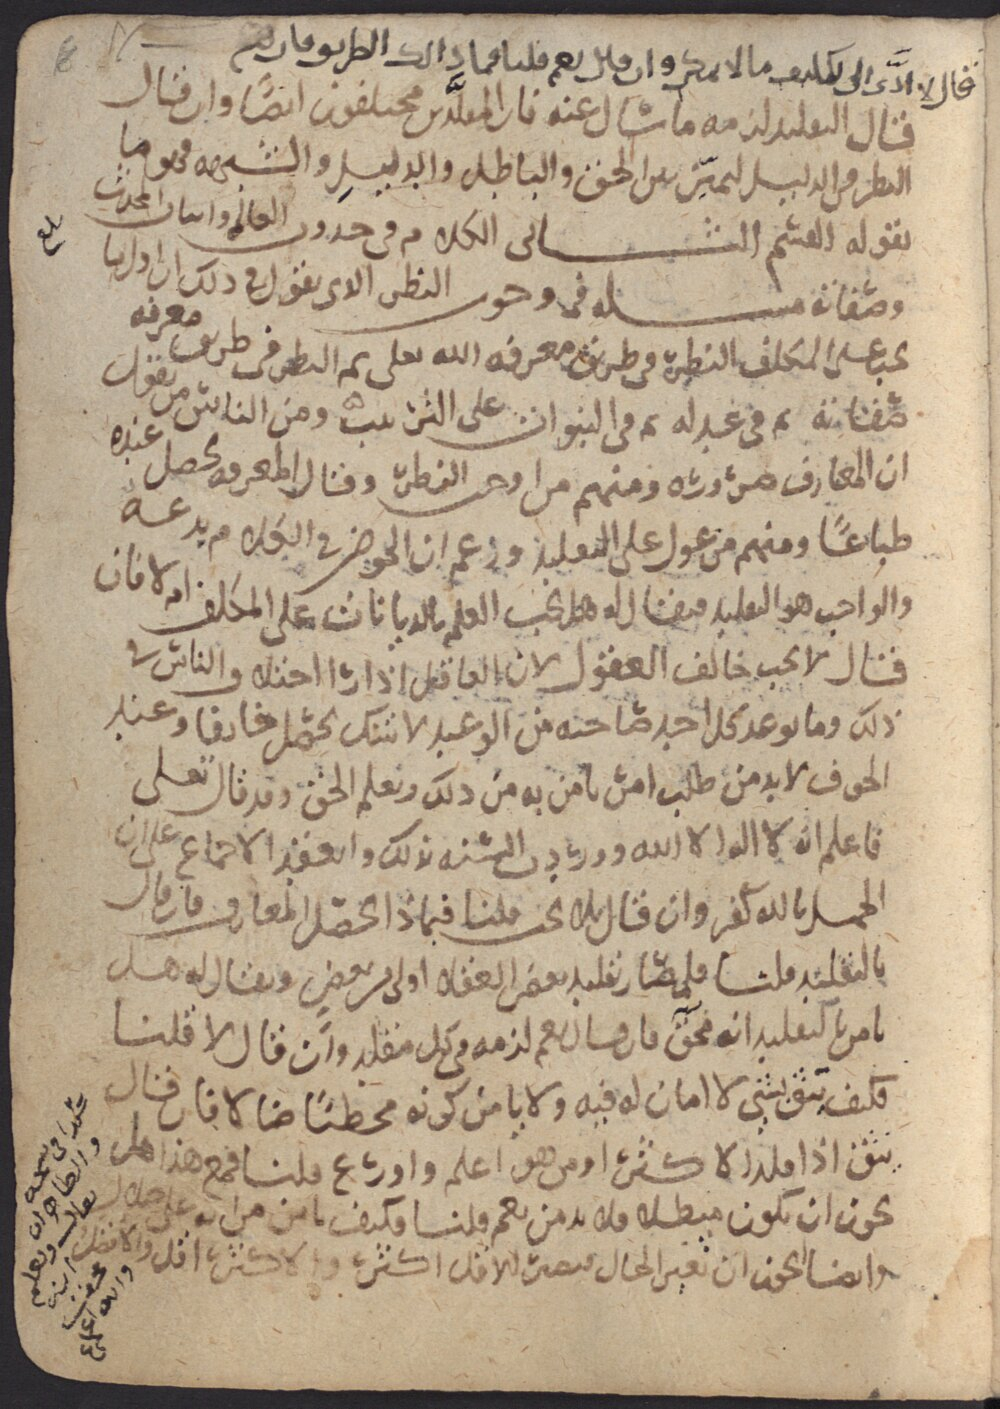 قال لا ادّى الى تكليف ما لا يمكن وان قال نعم قلنا فما ذالك الطريق فان
قال التقليد لزمه ما سال عنه فان المقلدين مختلفون ايضًا وان قال
النظر في الدليل ليميّز بين الحق والباطل والدليل والشبهه فهو ما
نقوله القسم الثـــانى الكلام فى حدوث العالم واثبات المحدث
وصفاته مسـله فى وجوب النظر الذى نقول فى ذلك ان اول ما
يجب على المكلف النظر فى طريق معرفه الله تعلى ثم النظر فى طريق معرفه
صفاته ثم فى عدله ثم فى النبوات على الترتيب ومن الناس من يقول
ان المعارف ضروره ومنهم من اوجب النظر وقال المعرفه تحصل عنده
طباعًا ومنهم من عول على التقليد وزعم ان الخوض فى الكلام بدعه
والواجب هو التقليد فيقال له هل يجب العلم بالديانات على المكلف ام لا فان
قال لا يجب خالف العقول لان العاقل اذا راا اختلاف الناس فى
ذلك وما توعد كل احد صاحبه من الوعيد لا شك يحصل خائفا وعند
الخوف لا بد من طلب امر يامن به من ذلك ويعلم الحق وقد قال تعلى
فاعلم انه لا اله الا الله ووردت السنه بذلك وانعقد الاجماع على ان
الجهل بالله كفر وان قال بلى يجب قلنا فبماذا تحصل المعارف فان قال
بالتقليد قلنا فلم صار تقليد بعض العقلا اولى من بعض ويقال له هل
يامن بالتقليد انه محقّ فان قال نعم لزمه فى كل مقلد وان قال لا قلنا
فكيف يثق بشى لا امان له فيه ولا يامن كونه مخطئًا ضالا فان قال
يثق اذا قلد الاكثر او من هو اعلم واورع قلنا فمع هذا هل
يجوز ان يكون مبطلا فلا بد من نعم قلنا فكيف يامن من انه على ضلال
وايضا يجوز ان تغير الحال فيصير الاقل اكثر والاكثر اقل والافضل
بلغ
والله اعلم